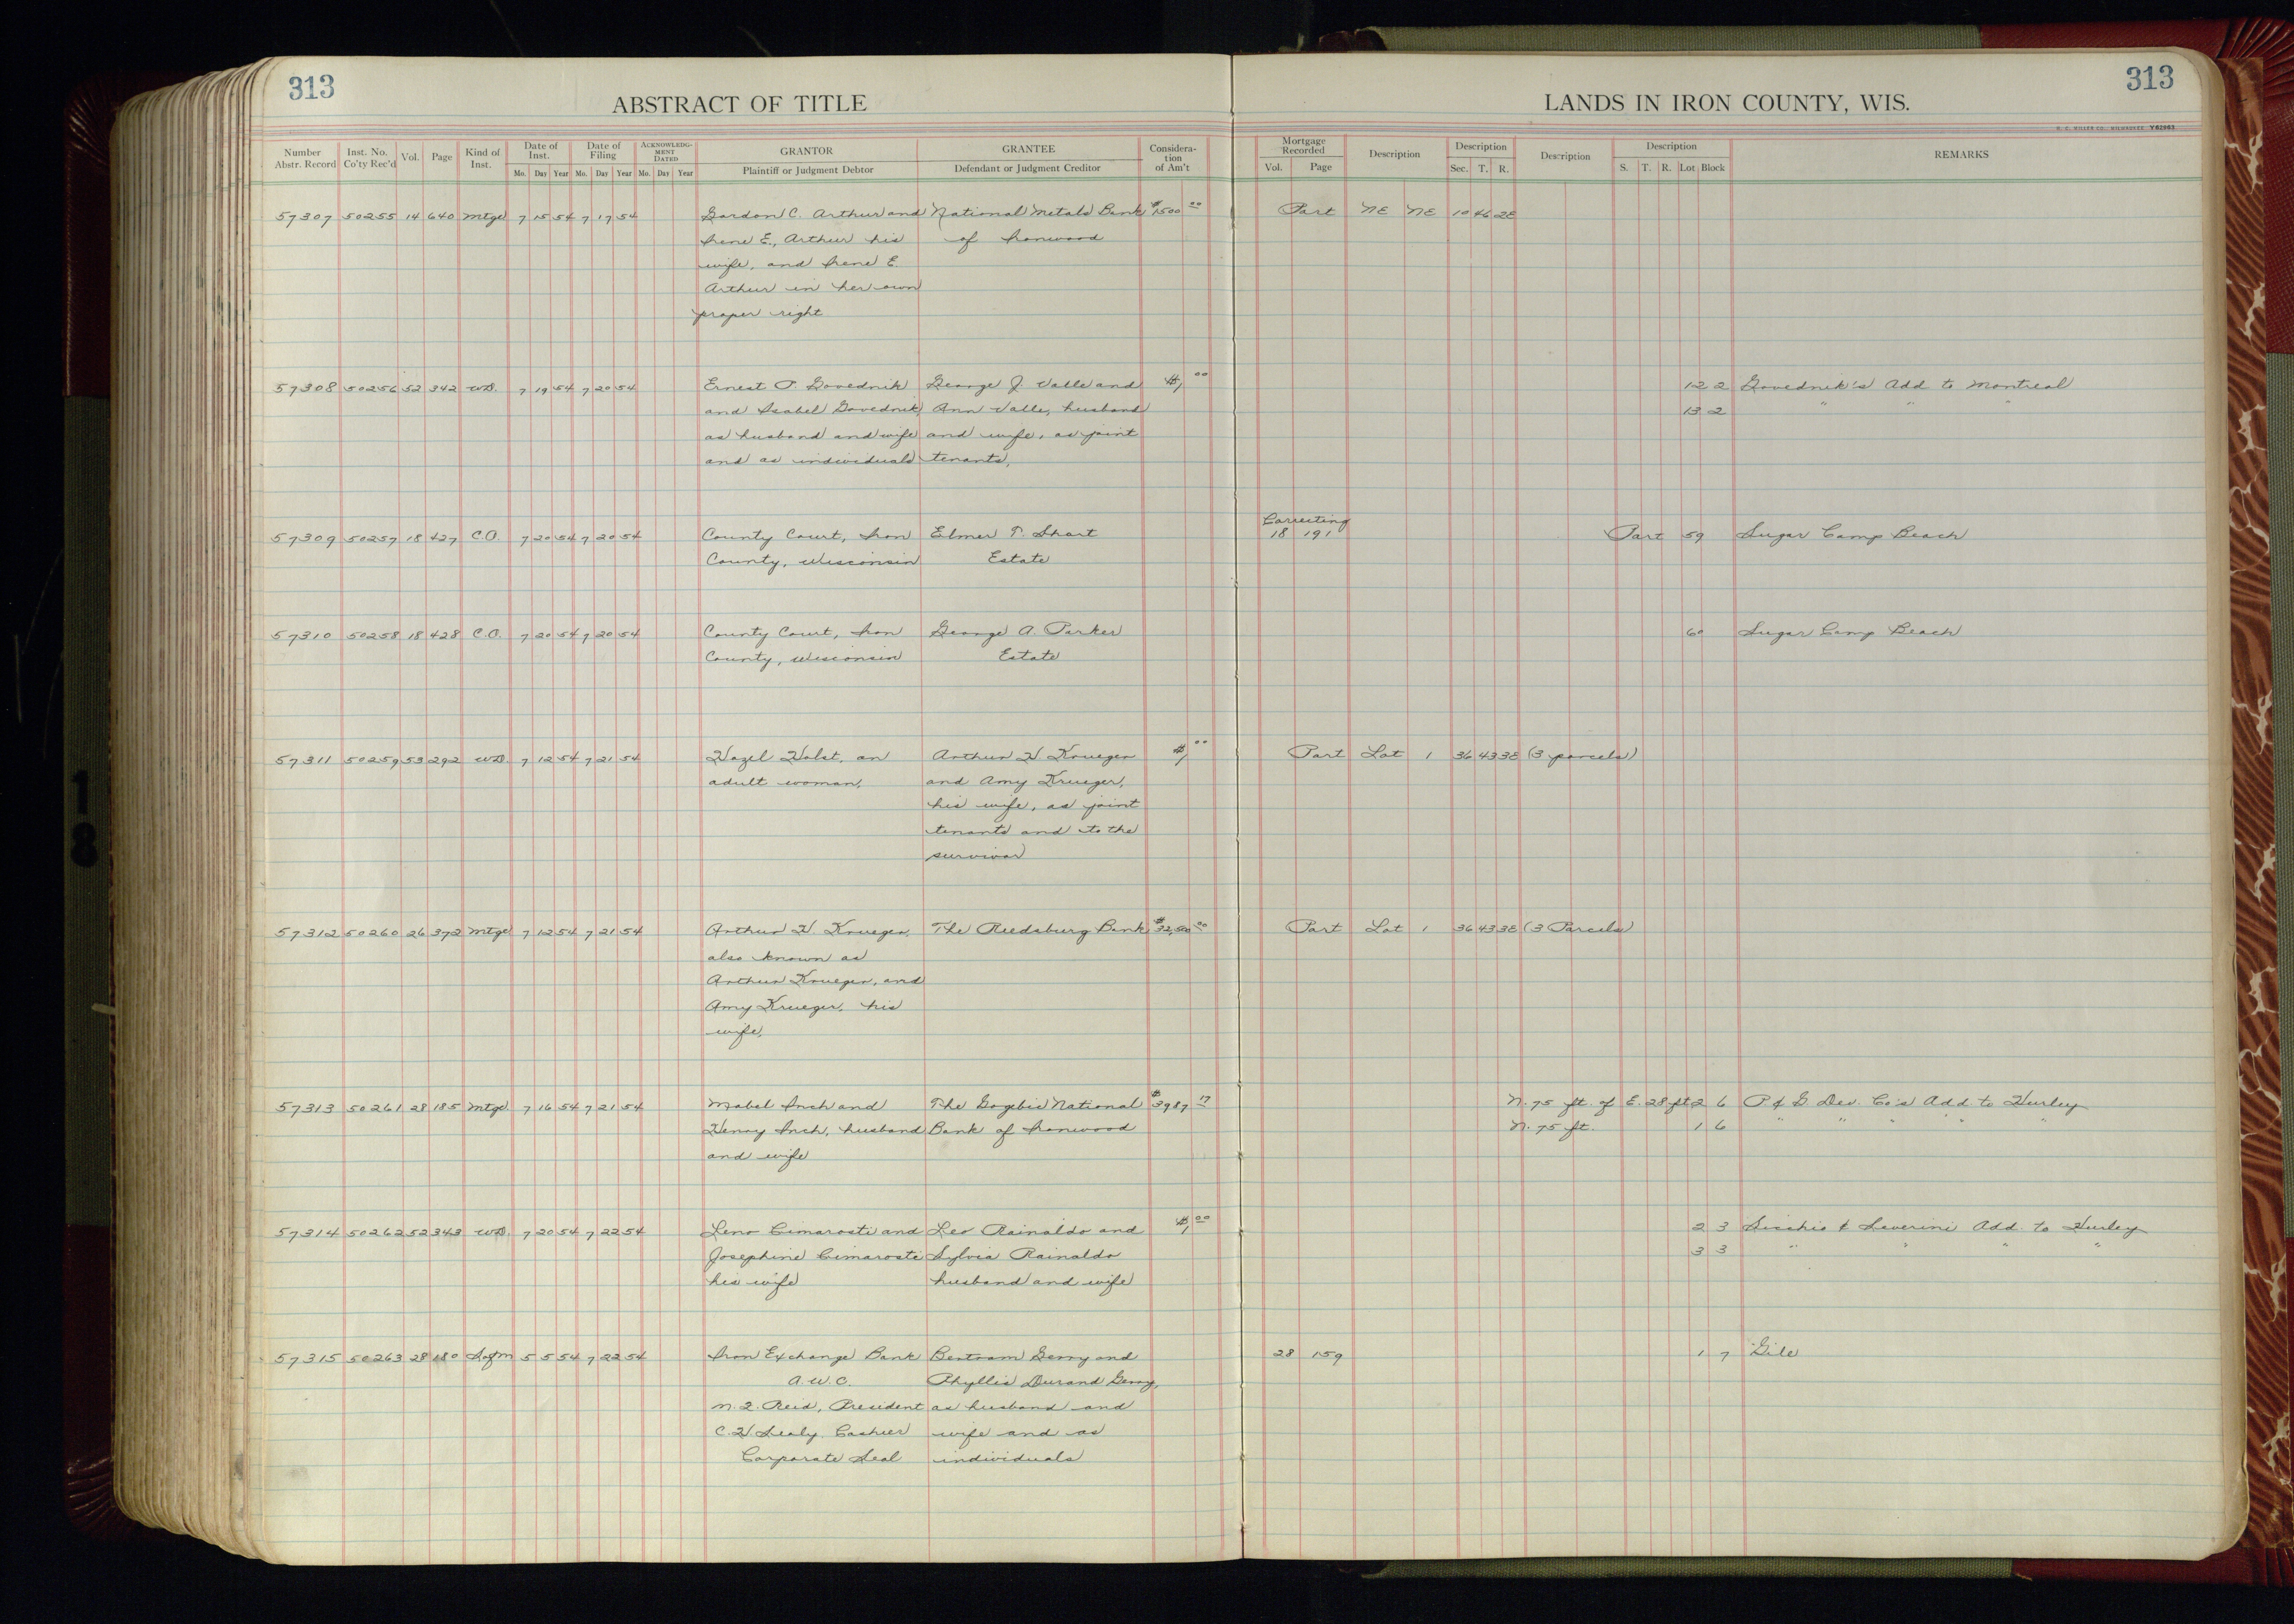 313
ABSTRACT OF TITLE
LANDS IN IRON COUNTY, WIS.
313
H. C. MILLER CO., MILWAUKEE Y62963
Number Abstr. Record Inst. No. Co'ty Rec'd Vol. Page Kind of Inst. Date of Inst. Mo. Day Year Date of Filing Mo. Day Year ACKNOWLEDGMENT DATED Mo. Day Year GRANTOR Plaintiff or Judgment Debtor GRANTEE Defendant or Judgment Creditor Consideration of Am't Mortgage Recorded Vol. Page Description Description Sec. T. R. Description Description S. T. R. Lot Block REMARKS
57307 50255 14 640 Mtge 7 15 54 7 17 54 Gordon C. Arthur and National Metals Bank $1500 00 Part NE NE 10 46 2E
Irene E. Arthur his of Ironwood
wife, and Irene E.
Arthur in her own
proper right
57308 50256 52 342 W.D. 7 19 54 7 20 54 Ernest P. Govednik George J. Valle and $1 00 12 2 Govednik's Add to Montreal
and Isabel Govednik, Ann Valle, husband 13 2 " " "
as husband and wife and wife, as joint
and as individuals tenants,
Correcting
57309 50257 18 427 C.O. 7 20 54 7 20 54 County Court, Iron Elmer T. Short 18 191 Part 59 Sugar Camp Beach
County, Wisconsin Estate
57310 50258 18 428 C.O. 7 20 54 7 20 54 County Court, Iron George A. Parker 60 Sugar Camp Beach
County, Wisconsin Estate
57311 50259 53 292 WD 7 12 54 7 21 54 Hazel Holst, an Arthur H. Krueger $1 00 Part Lot 1 36 43 3E (3 parcels)
adult woman, and Amy Krueger,
his wife, as joint
tenants and to the
survivor
57312 50260 26 372 Mtge 7 12 54 7 21 54 Arthur H. Krueger, The Reedsburg Bank Part Lot 1 36 43 3E (3 Parcels)
also known as
Arthur Krueger, and
Amy Krueger, his
wife,
57313 50261 28 185 Mtge. 7 16 54 7 21 54 Mabel Inch and The Gogebic National $3987 17 N. 75 ft. of E. 28 ft 2 6 P & G Dev. Co's Add to Hurley
Henry Inch, husband Bank of Ironwood N. 75 ft. 1 6 " " " " "
and wife
57314 50262 52 343 W.D. 7 20 54 7 22 54 Leno Cimarosti and Leo Rainaldo and $1 00 2 3 Secchis & Severini Add. to Hurley
Josephine Cimarosti Sylvia Rainaldo 3 3 " " " "
his wife husband and wife
57315 50263 28 180 S of M 5 5 54 7 22 54 Iron Exchange Bank Bertram Gerry and 28 159 1 7 Gile
A.W.C. Phyllis Durand Gerry,
President as husband and
Cashier wife and as
Corporate Seal individuals